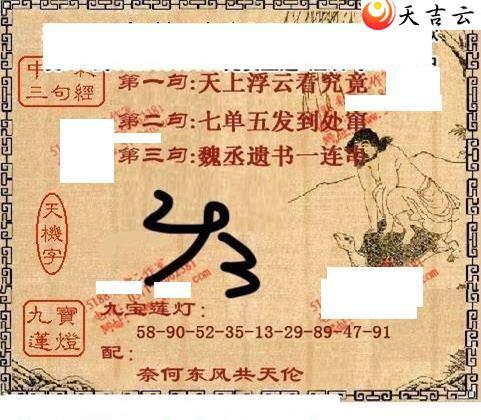 天吉云
三句經
第一句:天上浮云看究竟
第二句:七单五发到处窜
第三句:魏丞遗书一连串
天機字
九寶蓮燈
九宝莲灯:
58-90-52-35-13-29-89-47-91
配:
奈何东风共天伦